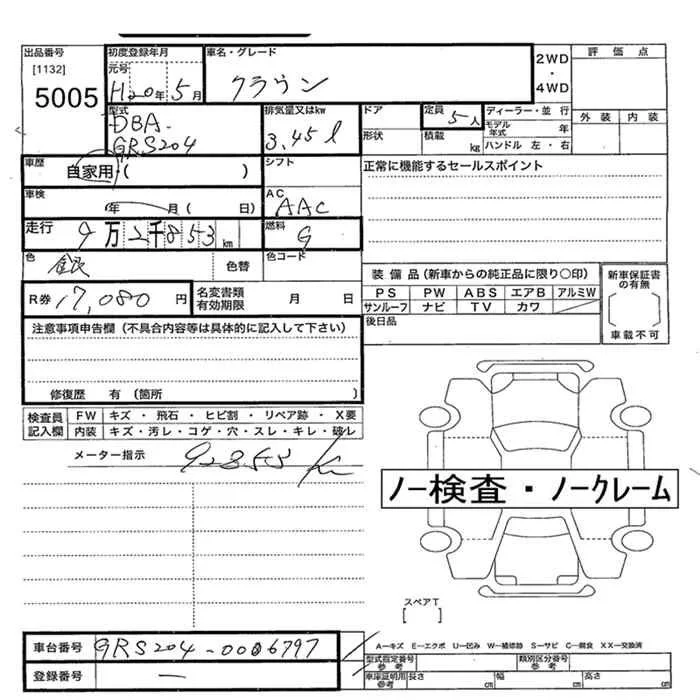 出品番号
[1132]
5005
初度登録年月
元号
H20年5月
車名・グレード
クラウン
2WD
・
4WD
評価点
外装 内装
型式
DBA-
GRS204
排気量又はkw
3.45ℓ
ドア
形状
定員 5人
積載 kg
ディーラー・並行
モデル年式 年
ハンドル 左・右
車歴
自家用・( )
シフト
正常に機能するセールスポイント
車検
年 月( 日)
AC
AAC
走行
9万2千853km
燃料
G
色
銀
色替
色コード
装備品(新車からの純正品に限り○印)
PS PW ABS エアB アルミW
サンルーフ ナビ TV カワ
新車保証書の有無
[ ]
車載不可
R券 17,080円
名変書類有効期限 月 日
後日品
注意事項申告欄(不具合内容等は具体的に記入して下さい)
修復歴 有(箇所 )
検査員記入欄
FW キズ・飛石・ヒビ割・リペア跡・X要
内装 キズ・汚レ・コゲ・穴・スレ・キレ・破レ
メーター指示 92853 K
ノー検査・ノークレーム
スペアT
[ ]
車台番号 GRS204-0006797
登録番号 —
A—キズ E—エクボ U—凹み W—補修跡 S—サビ C—腐食 XX—交換済
型式指定番号
参考
類別区分番号
参考
車庫証明用
参考
長さ cm 幅 cm 高さ cm